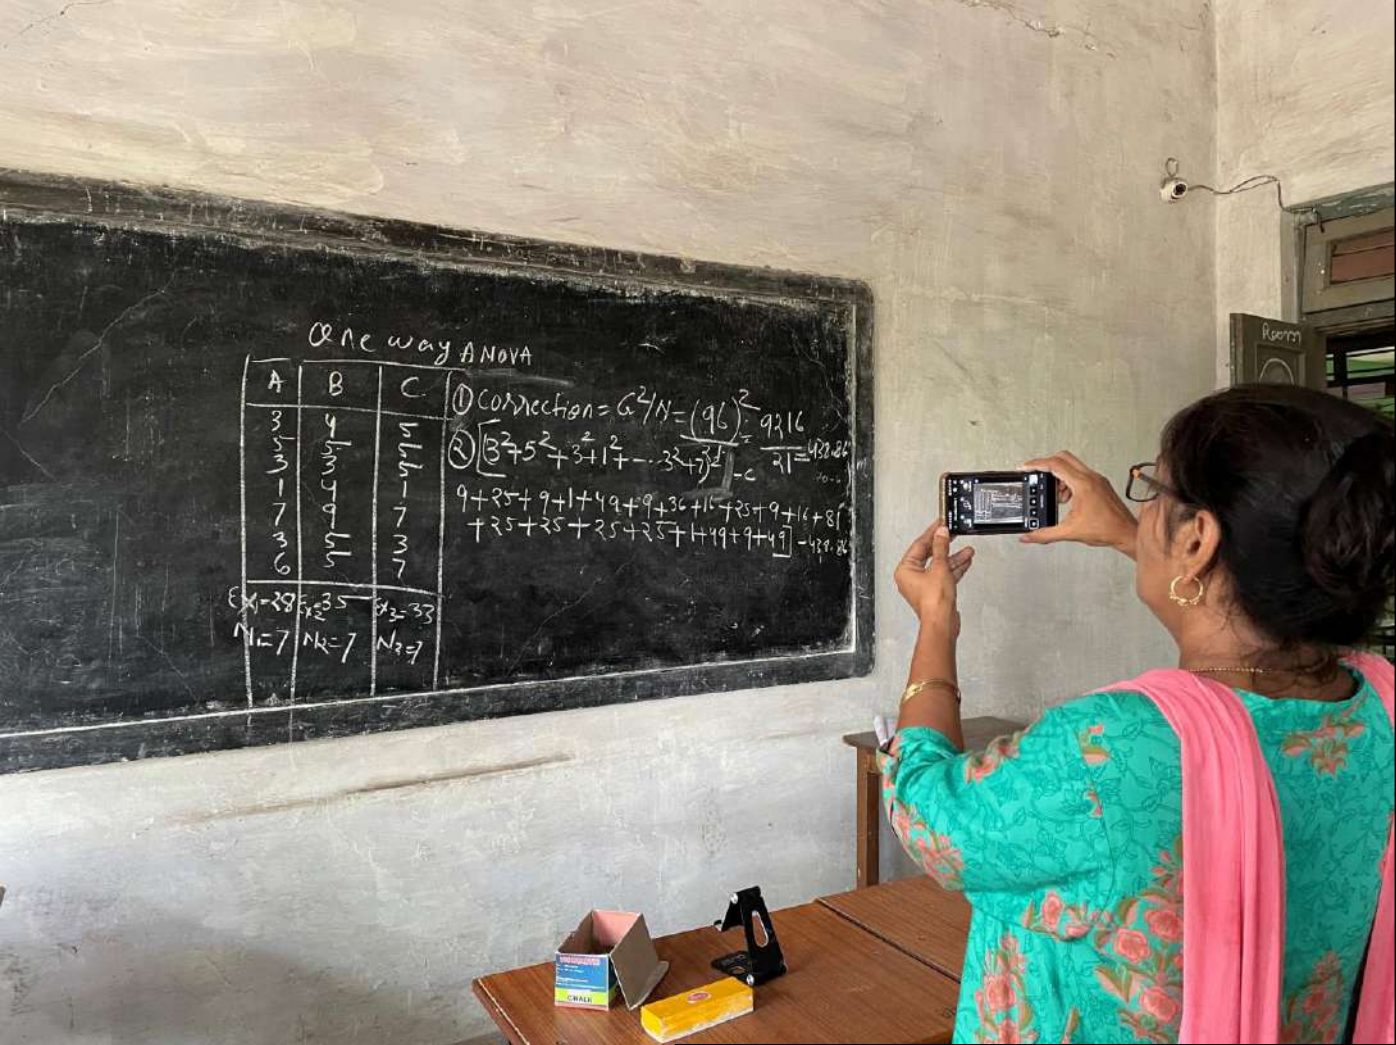 One way ANOVA
A B C
3 4 5
5 5 5
3 3 5
1 4 1
7 9 7
3 5 3
6 5 7
Σx₁=28 Σx₂=35 Σx₃=33
N₁=7 N₂=7 N₃=7
① Correction = G²/N = (96)²/21 = 9216/21 = 438.86
② [3²+5²+3²+1²+--- 3²+7²] -C
9+25+9+1+49+9+36+16+25+9+16+81
+25+25+25+25+1+49+9+49] -438.86
Room
CHALK